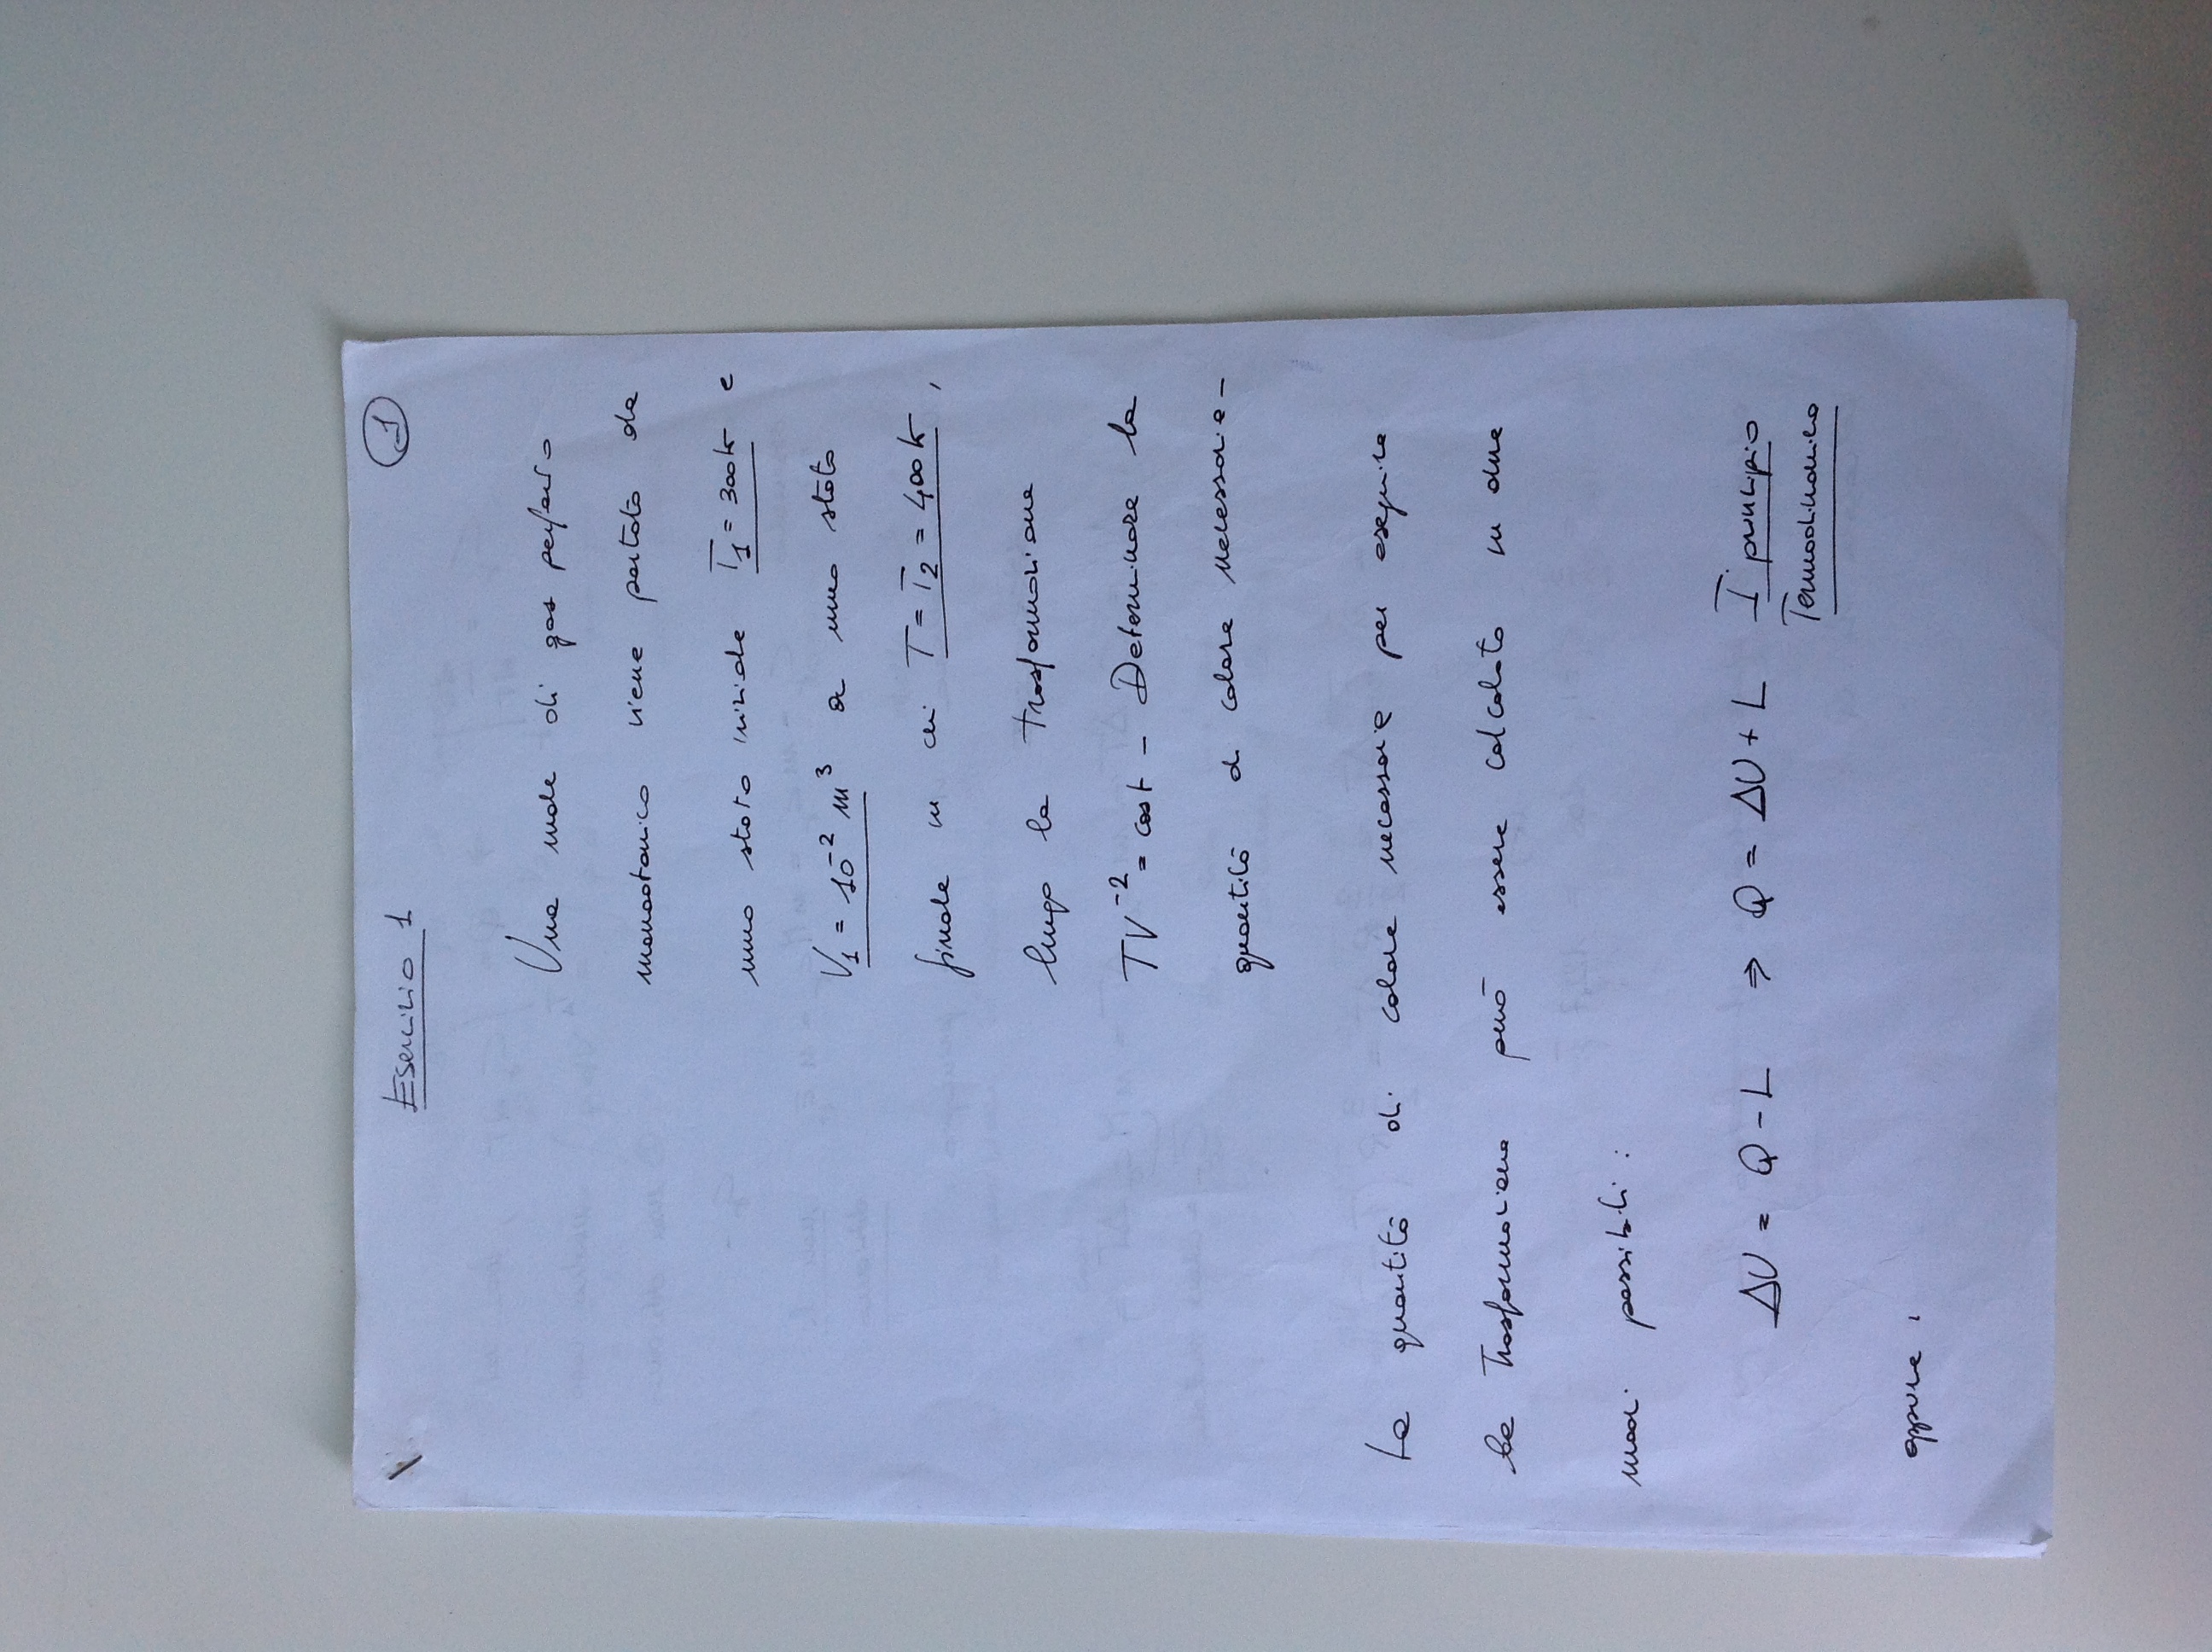 Esercizio 1
1
Una mole di gas perfetto
monoatomico viene portato da
uno stato iniziale T₁ = 300K e
V₁ = 10⁻² m³ a uno stato
finale in cui T = T₂ = 400K,
lungo la trasformazione
TV⁻² = cost - Determinare la
quantità di calore necessaria -
La quantità di calore necessaria per eseguire
la trasformazione può essere calcolata in due
modi possibili:
ΔU = Q - L ⇒ Q = ΔU + L I principio
Termodinamica
oppure :